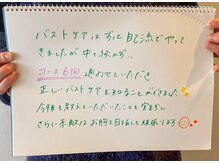 バストケアはずっと自己流でやって
きましたが
コース6回 通わせていただき
正しいバストケアを知ることができました
今後も教えていただいたことを守り
さらに素敵なお胸を目指して頑張ります